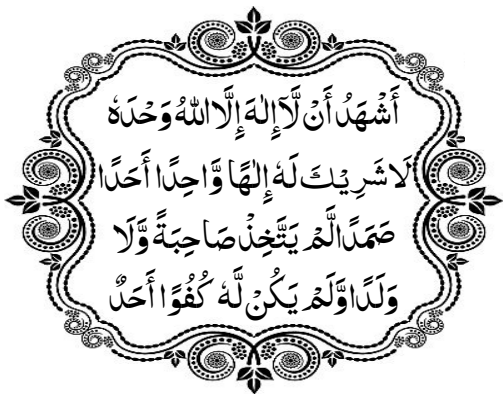 أَشْهَدُ أَنْ لَّآ إِلٰهَ إِلَّا اللهُ وَحْدَهٗ
لَا شَرِيْكَ لَهٗ إِلٰهًا وَّاحِدًا أَحَدًا
صَمَدًا لَّمْ يَتَّخِذْ صَاحِبَةً وَّلَا
وَلَدًا وَّلَمْ يَكُنْ لَّهٗ كُفُوًا أَحَدٌ